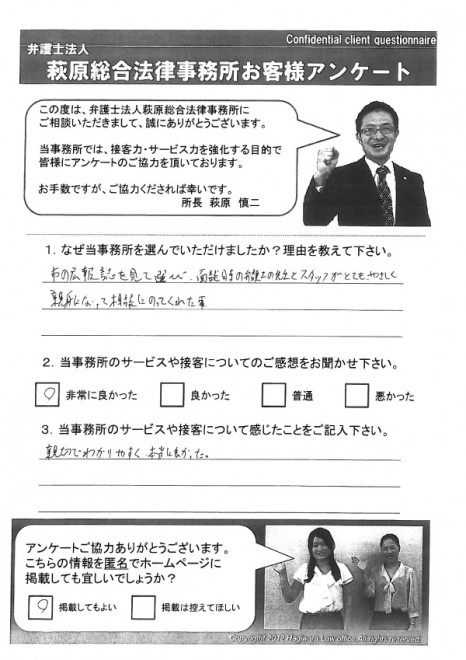 Confidential client questionnaire
弁護士法人
萩原総合法律事務所お客様アンケート
この度は、弁護士法人萩原総合法律事務所に
ご相談いただきまして、誠にありがとうございます。
当事務所では、接客力・サービス力を強化する目的で
皆様にアンケートのご協力を頂いております。
お手数ですが、ご協力くだされば幸いです。
所長 萩原 慎二
1. なぜ当事務所を選んでいただけましたか？理由を教えて下さい。
市の広報誌を見て選び、面談時の弁護士の先生とスタッフがとてもやさしく
親身になって相談にのってくれた事
2. 当事務所のサービスや接客についてのご感想をお聞かせ下さい。
非常に良かった 良かった 普通 悪かった
3. 当事務所のサービスや接客について感じたことをご記入下さい。
親切でわかりやすく、本当に良かった。
アンケートご協力ありがとうございます。
こちらの情報を匿名でホームページに
掲載しても宜しいでしょうか？
掲載してもよい 掲載は控えてほしい
Copyright 2012 Hagiwara Law office All rights reserved